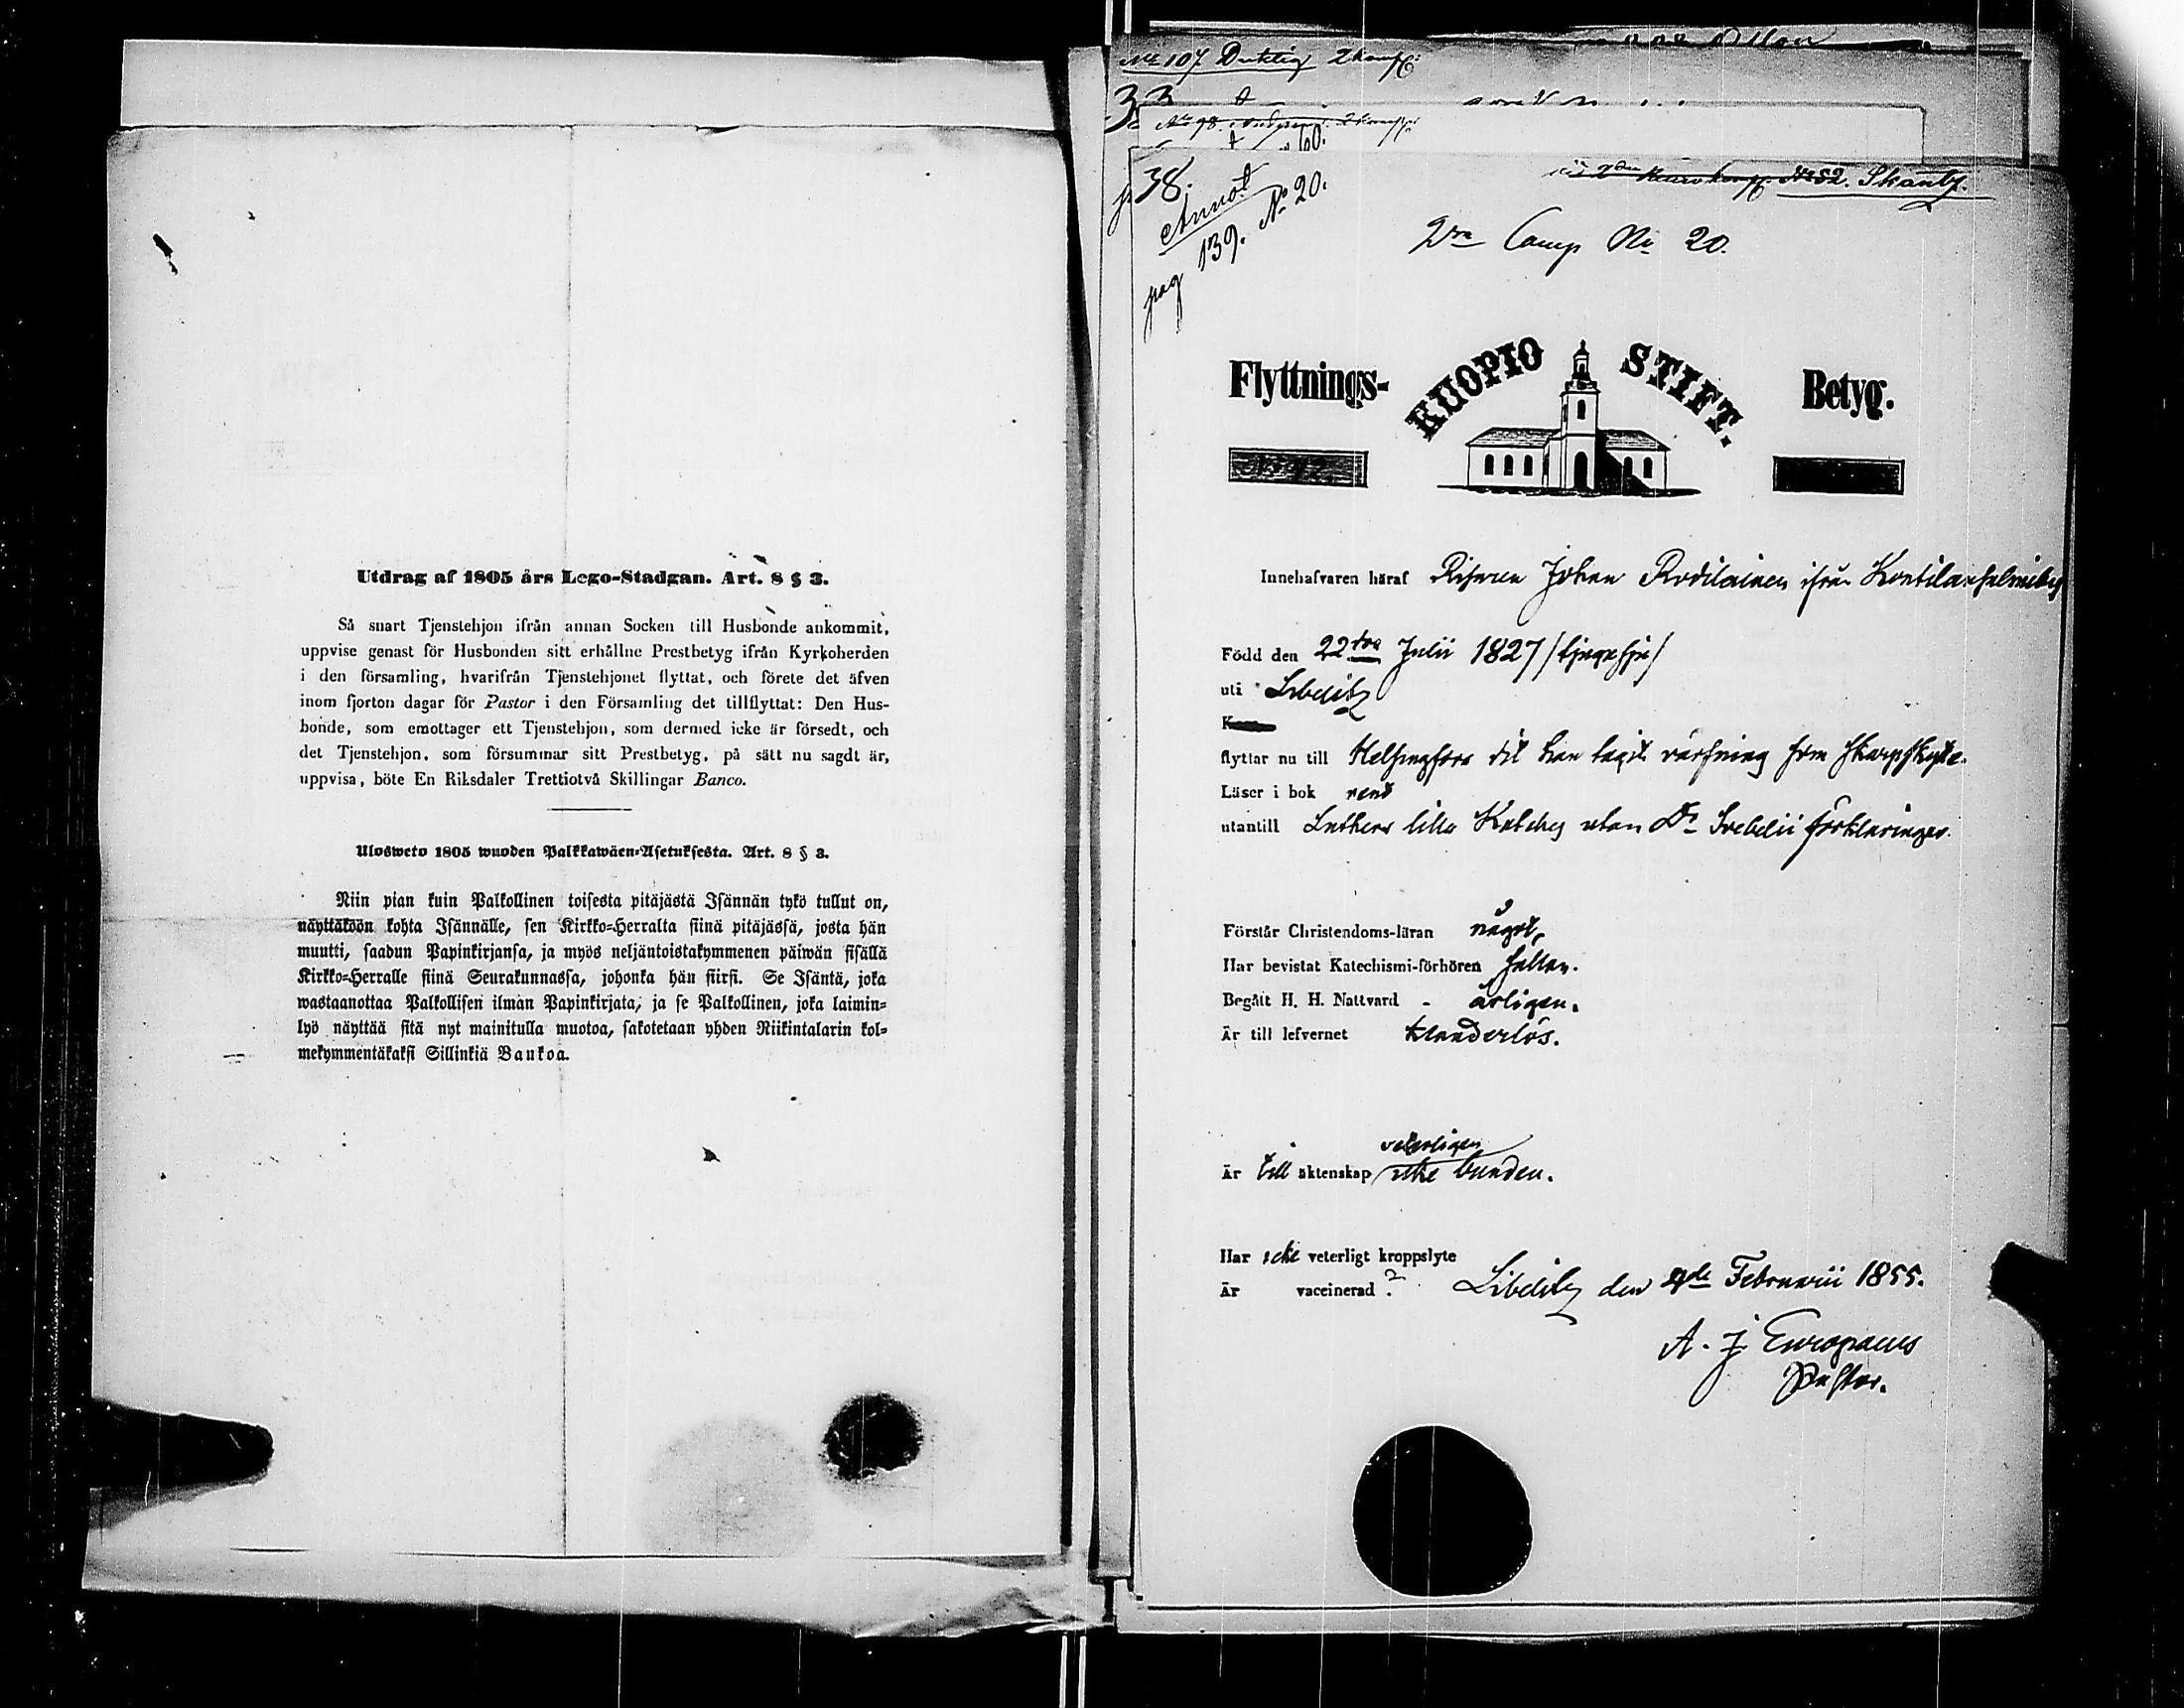 Utdrag af 1805 års Lego-Stadgan. Art. 8 § 3.
Så snart Tjenstehjon ifrån annan Socken till Husbonde ankommit,
uppvise genast för Husbonden sitt erhållne Prestbetyg ifrån Kyrkoherden
i den församling, hvarifrån Tjenstehjonet flyttat, och förete det äfven
inom fjorton dagar för Pastor i den Församling det tillflyttat: Den Hus-
bonde, som emottager ett Tjenstehjon, som dermed icke är försedt, och
det Tjenstehjon, som försummar sitt Prestbetyg, på sätt nu sagdt är,
uppvisa, böte En Riksdaler Trettiotvå Skillingar Banco.
Ulosweto 1805 wuoden Palkkawäen-Asetuksesta. Art. 8 § 3.
Niin pian kuin Palkollinen toisesta pitäjästä Isännän tykö tullut on,
näyttäköön kohta Isännälle, sen Kirkko-Herralta siinä pitäjässä, josta hän
muutti, saadun Papinkirjansa, ja myös neljäntoistakymmenen päiwän sisällä
Kirkko-Herralle siinä Seurakunnassa, johonka hän siirsi. Se Isäntä, joka
wastaanottaa Palkollisen ilman Papinkirjata, ja se Palkollinen, joka laimin-
lyö näyttää sitä nyt mainitulla muotoa, sakotetaan yhden Riikintalarin kol-
mekymmentäkaksi Sillinkiä Bankoa.
No 107 Duktig 2 komp:
33
No 98.
60.
38.
Annot
pag 139. No 20.
No 52. Skantz.
2dra Comp No 20.
Flyttnings- KUOPIO STIFT. Betyg.
No 42.
Innehafvaren häraf Johan Rodilainen ifrån
Född den 22dra Julii 1827
uti Libelitz
flyttar nu till Helsingfors dit han tagit värfning som skarpskytte.
Läser i bok rent
utantill Luthers lilla Katches utan Dr Svebelii förklaringar.
Förstår Christendoms-läran något,
Har bevistat Katechismi-förhören sällan.
Begått H. H. Nattvard - årligen.
Är till lefvernet klanderlös.
veterligen
Är till äktenskap icke bunden.
Har icke veterligt kroppslyte
Är vaccinerad ? Libelitz den Februarii 1855.
A. J. Europaeus
Pastor.